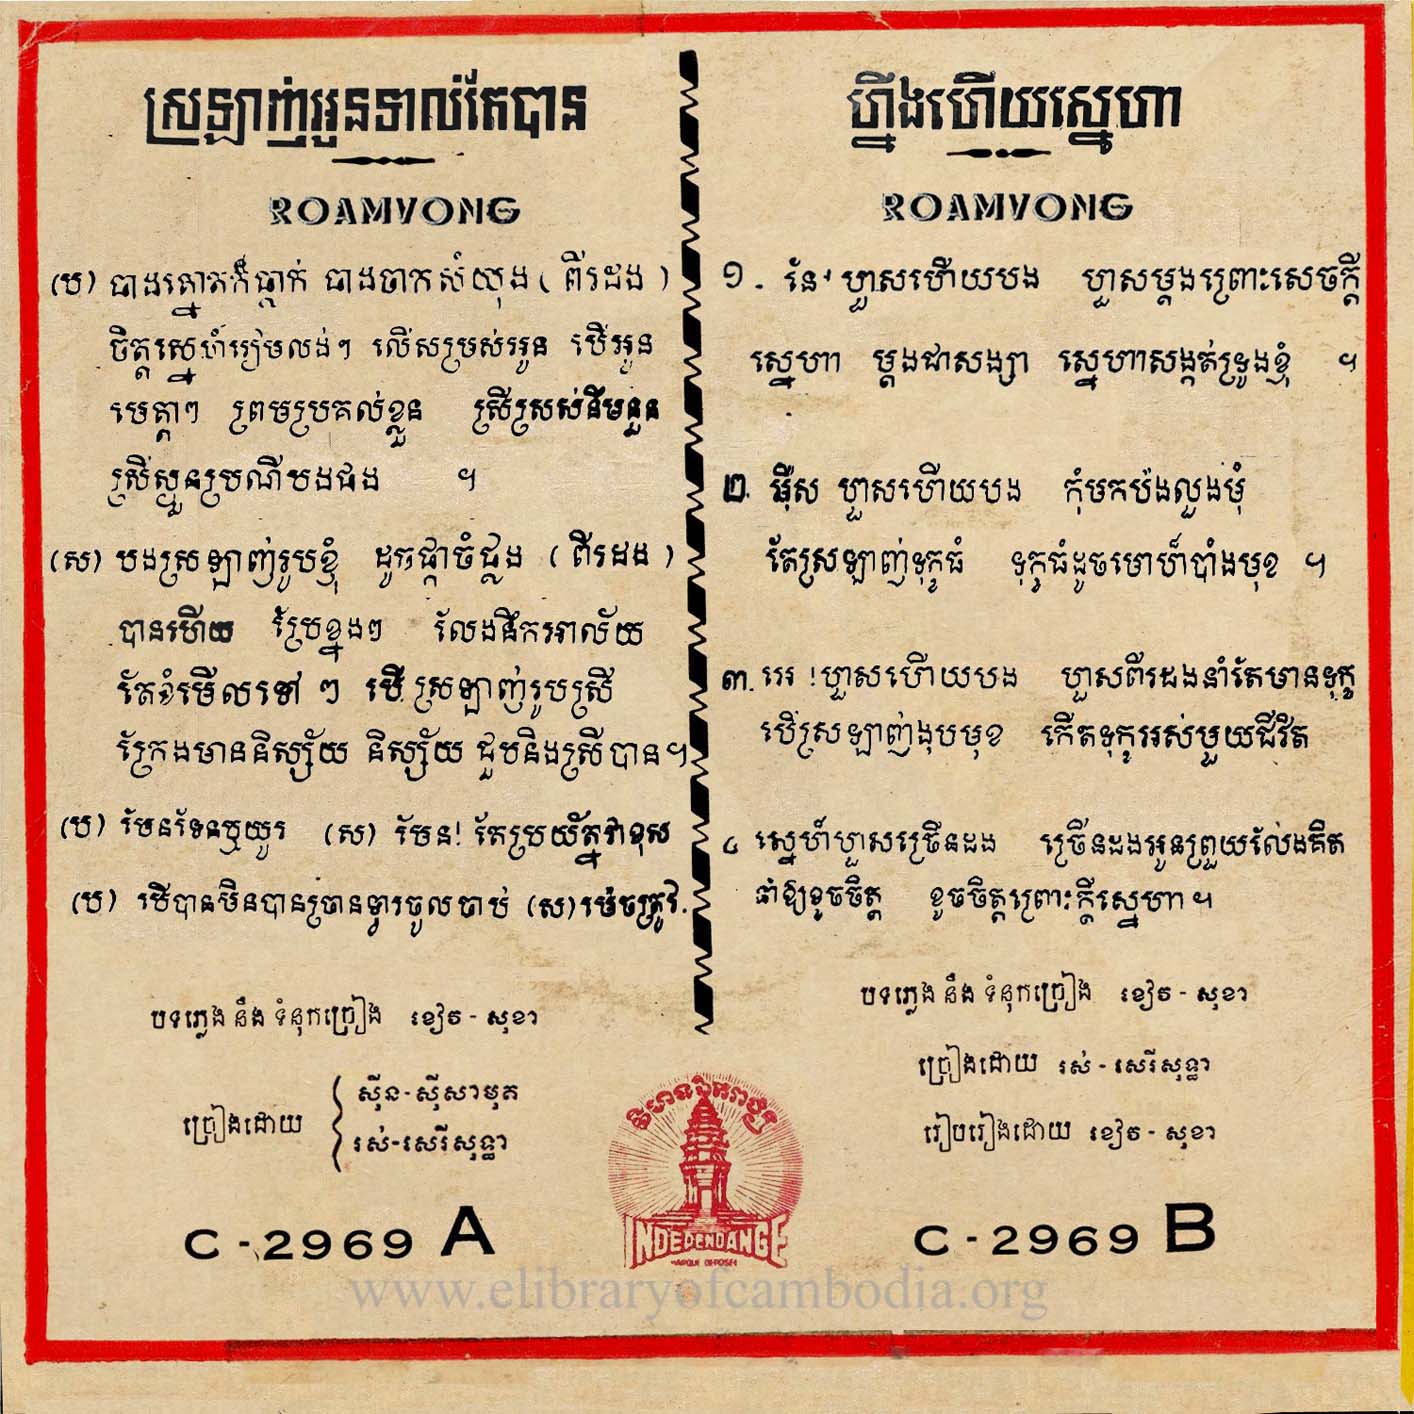 ស្រឡាញ់អូនទាល់តែបាន
ROAMVONG
(ប) បាងត្នោតក៏ធ្លាក់ ធាងចាកសំយុង ( ពីរដង )
ចិត្តស្នេហ៍រៀមលង់ៗ លើសម្រស់អូន បើអូន
មេត្តាៗ ព្រមប្រគល់ខ្លួន ស្រីស្រស់នឹមនួន
ស្រីស្ងួនប្រណីបងផង ។
(ស) បងស្រឡាញ់រូបខ្ញុំ ដូចផ្កាចំផ្លូង ( ពីរដង )
បានហើយ រំប្រែខ្នងៗ លែងនឹកអាល័យ
តែខំមើលទៅ ៗ បើ ស្រឡាញ់រូបស្រី
ក្រែងមាននិស្ស័យ និស្ស័យ ជួបនិងស្រីបាន។
(ប) មែនទែនឬយូរ (ស) មែន! តែប្រយ័ត្នវាខុស
(ប) បើបានមិនបានប្រានទ្វារចូលចាប់ (ស) ម៉េចត្រូវ.
បទភ្លេង នឹង ទំនុកច្រៀង ខៀវ - សុខា
ច្រៀងដោយ
ស៊ីន-ស៊ីសាមុត
រស់-សេរីសុទ្ធា
C - 2969 A
ហ្នឹងហើយស្នេហា
ROAMVONG
១ . នែ! ហួសហើយបង ហួសម្តងព្រោះសេចក្តី
ស្នេហា ម្តងជាសង្សា ស្នេហាសង្កត់ទ្រូងខ្ញុំ ។
២. ម៉ឺស ហួសហើយបង កុំមកប៉ងលួងមុំ
តែស្រឡាញ់ទុក្ខធំ ទុក្ខធំដូចមោហ៍បាំងមុខ ។
៣. អេ !ហួសហើយបង ហួសពីរដងនាំតែមានទុក្ខ
បើស្រឡាញ់ងុបមុខ កើតទុក្ខអស់មួយជីវិត
៤ ស្នេហ៍ហួសច្រើនដង ច្រើនដងអូនព្រួយលែងគិត
នាំឱ្យខូចចិត្ត ខូចចិត្តព្រោះក្តីស្នេហា ។
បទភ្លេង នឹង ទំនុកច្រៀង ខៀវ - សុខា
ច្រៀងដោយ រស់ - សេរីសុទ្ធា
រៀបរៀងដោយ ខៀវ - សុខា
C - 2969 B
វិមានឯករាជ្យ
INDÉPENDANCE
MARQUE DEPOSÉE
www.elibraryofcambodia.org